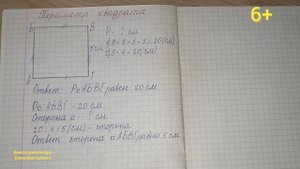 Периметр квадрата
6+
Б В
P - ? см
5см
1) 5 + 5 + 5 + 5 = 20 (см)
2) 5 · 4 = 20 (см)
А Г
Ответ P□ АБВГ равен 20 см
P□ АБВГ - 20 см
Сторона а - ? см
20 : 4 = 5 (см) - сторона
Ответ сторона □ АБВГ равна 5 см